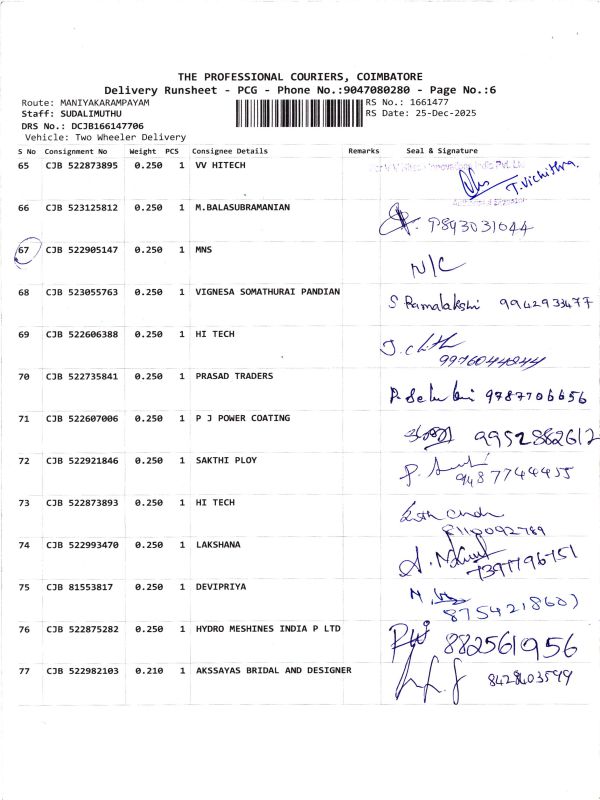 THE PROFESSIONAL COURIERS, COIMBATORE
Delivery Runsheet - PCG - Phone No.:9047080280 - Page No.:6
Route: MANIYAKARAMPAYAM
RS No.: 1661477
Staff: SUDALIMUTHU
RS Date: 25-Dec-2025
DRS No.: DCJB166147706
Vehicle: Two Wheeler Delivery
S No Consignment No Weight PCS Consignee Details Remarks Seal & Signature
65 CJB 522873895 0.250 1 VV HITECH T. Vichithra.
66 CJB 523125812 0.250 1 M.BALASUBRAMANIAN 9843031044
67 CJB 522905147 0.250 1 MNS N/C
68 CJB 523055763 0.250 1 VIGNESA SOMATHURAI PANDIAN S. Ramalakshi 9942933477
69 CJB 522606388 0.250 1 HI TECH
70 CJB 522735841 0.250 1 PRASAD TRADERS 9787706656
71 CJB 522607006 0.250 1 P J POWER COATING 9952882612
72 CJB 522921846 0.250 1 SAKTHI PLOY 9487744455
73 CJB 522873893 0.250 1 HI TECH
74 CJB 522993470 0.250 1 LAKSHANA 7397796751
75 CJB 81553817 0.250 1 DEVIPRIYA
76 CJB 522875282 0.250 1 HYDRO MESHINES INDIA P LTD 882561956
77 CJB 522982103 0.210 1 AKSSAYAS BRIDAL AND DESIGNER 8428403599